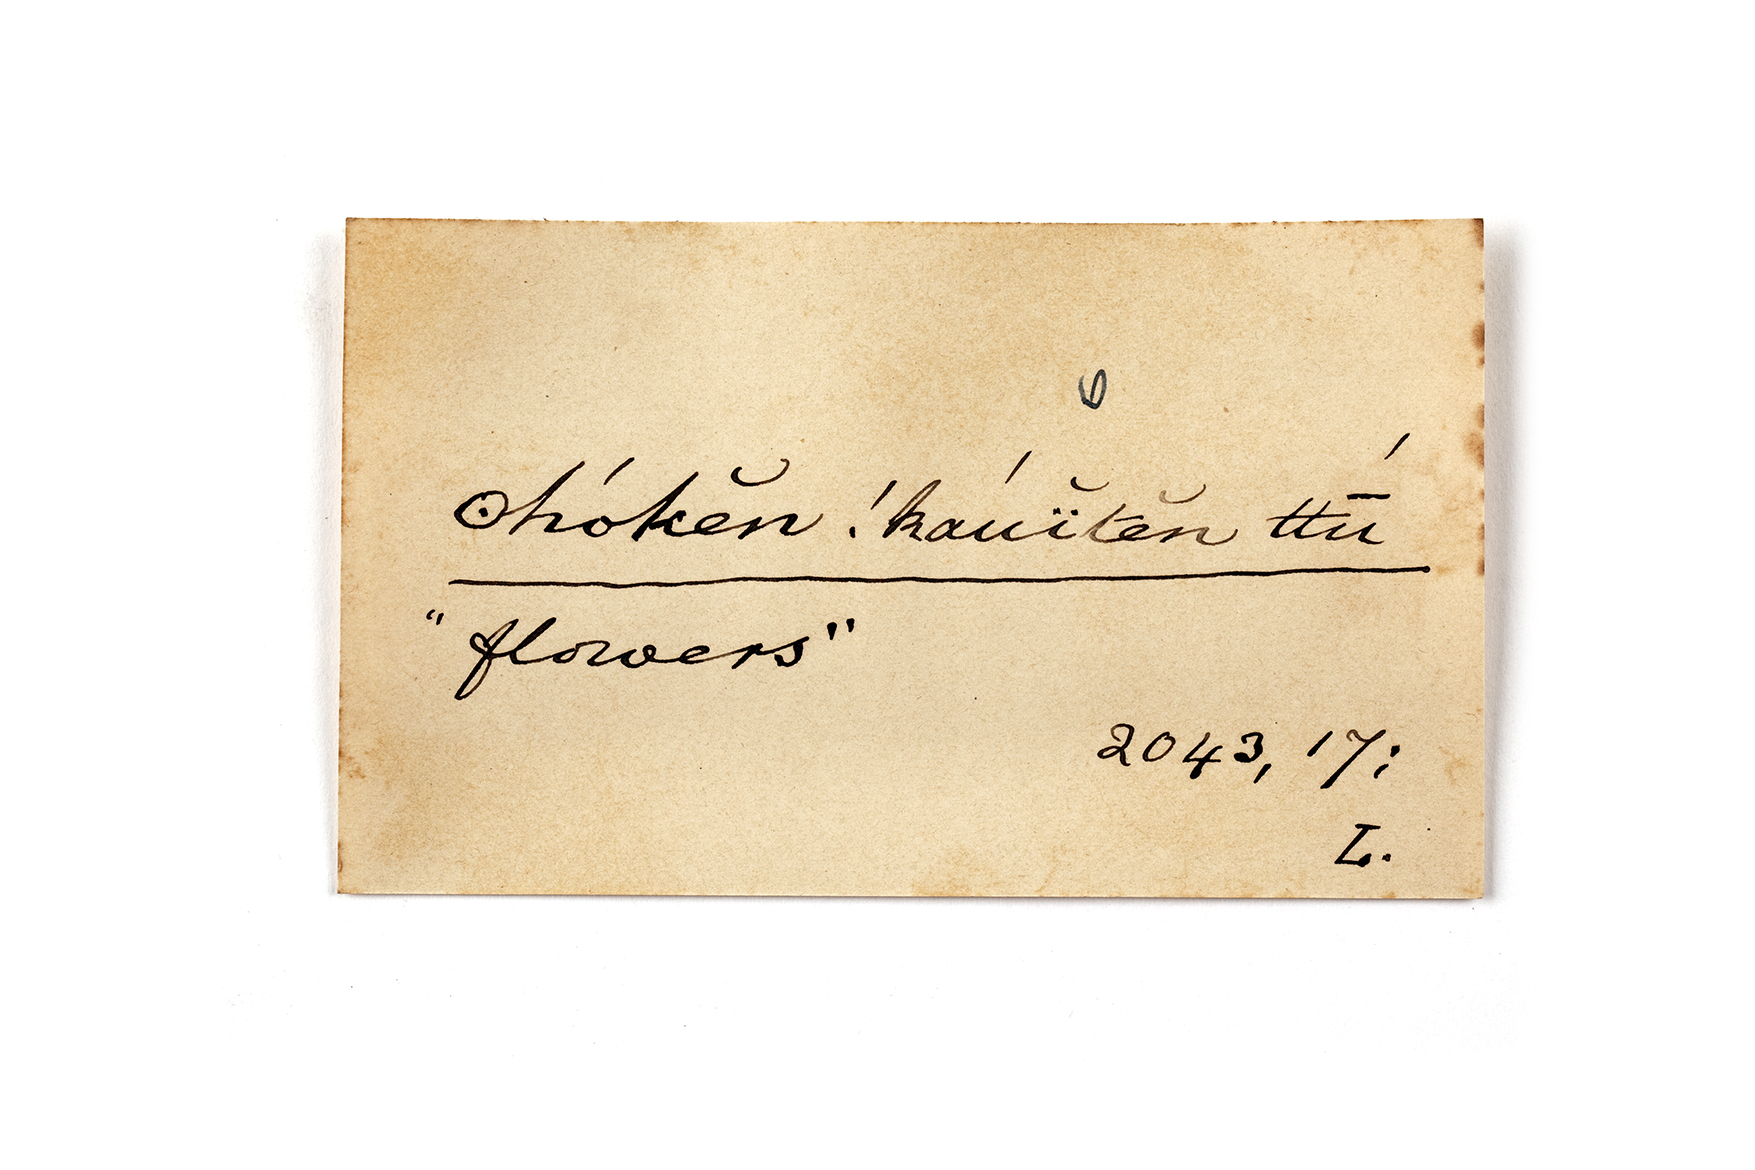 6
ʘhókĕn !káuïtĕn ttū́
"flowers"
2043, 17;
L.